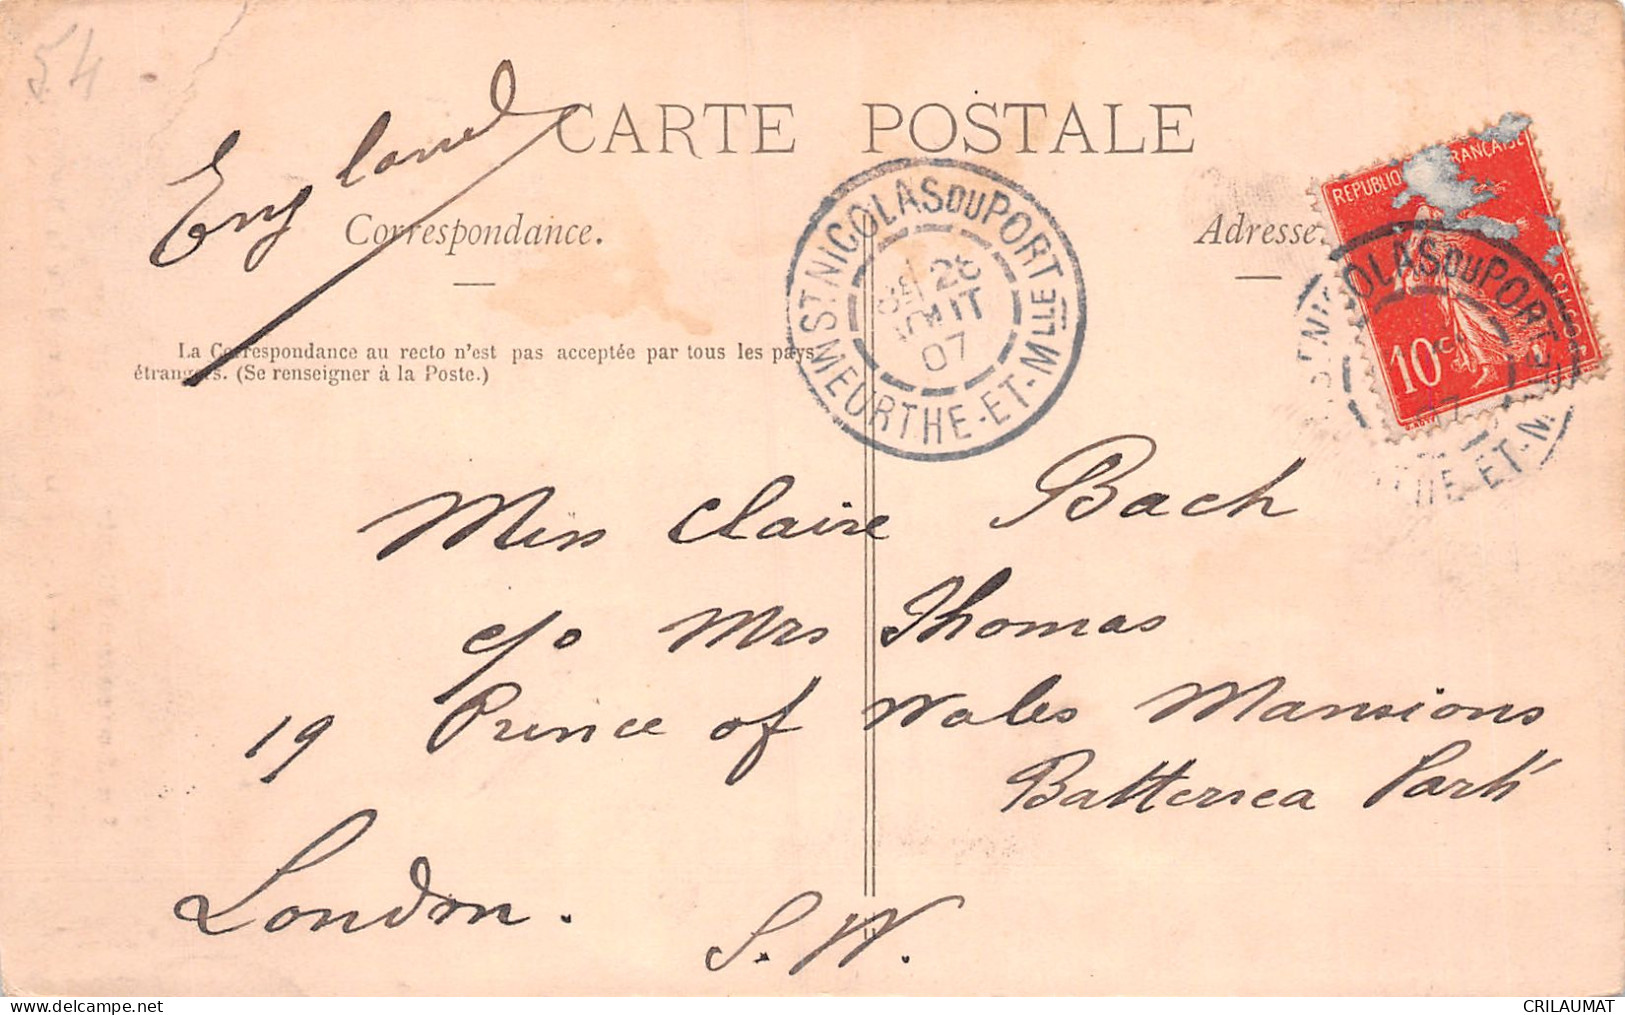 54
England
CARTE POSTALE
Correspondance.
Adresse
La Correspondance au recto n'est pas acceptée par tous les pays
étrangers. (Se renseigner à la Poste.)
ST NICOLAS DU PORT
28
AOUT
07
MEURTHE-ET-MLLE
REPUBLIQUE FRANÇAISE
POSTES
10 C.
NICOLAS DU PORT
07
THE-ET-M
Miss Claire Bach
c/o Mrs Thomas
19 Prince of Wales Mansions
Battersea Park
London.
S.W.
delcampe.net
CRILAUMAT